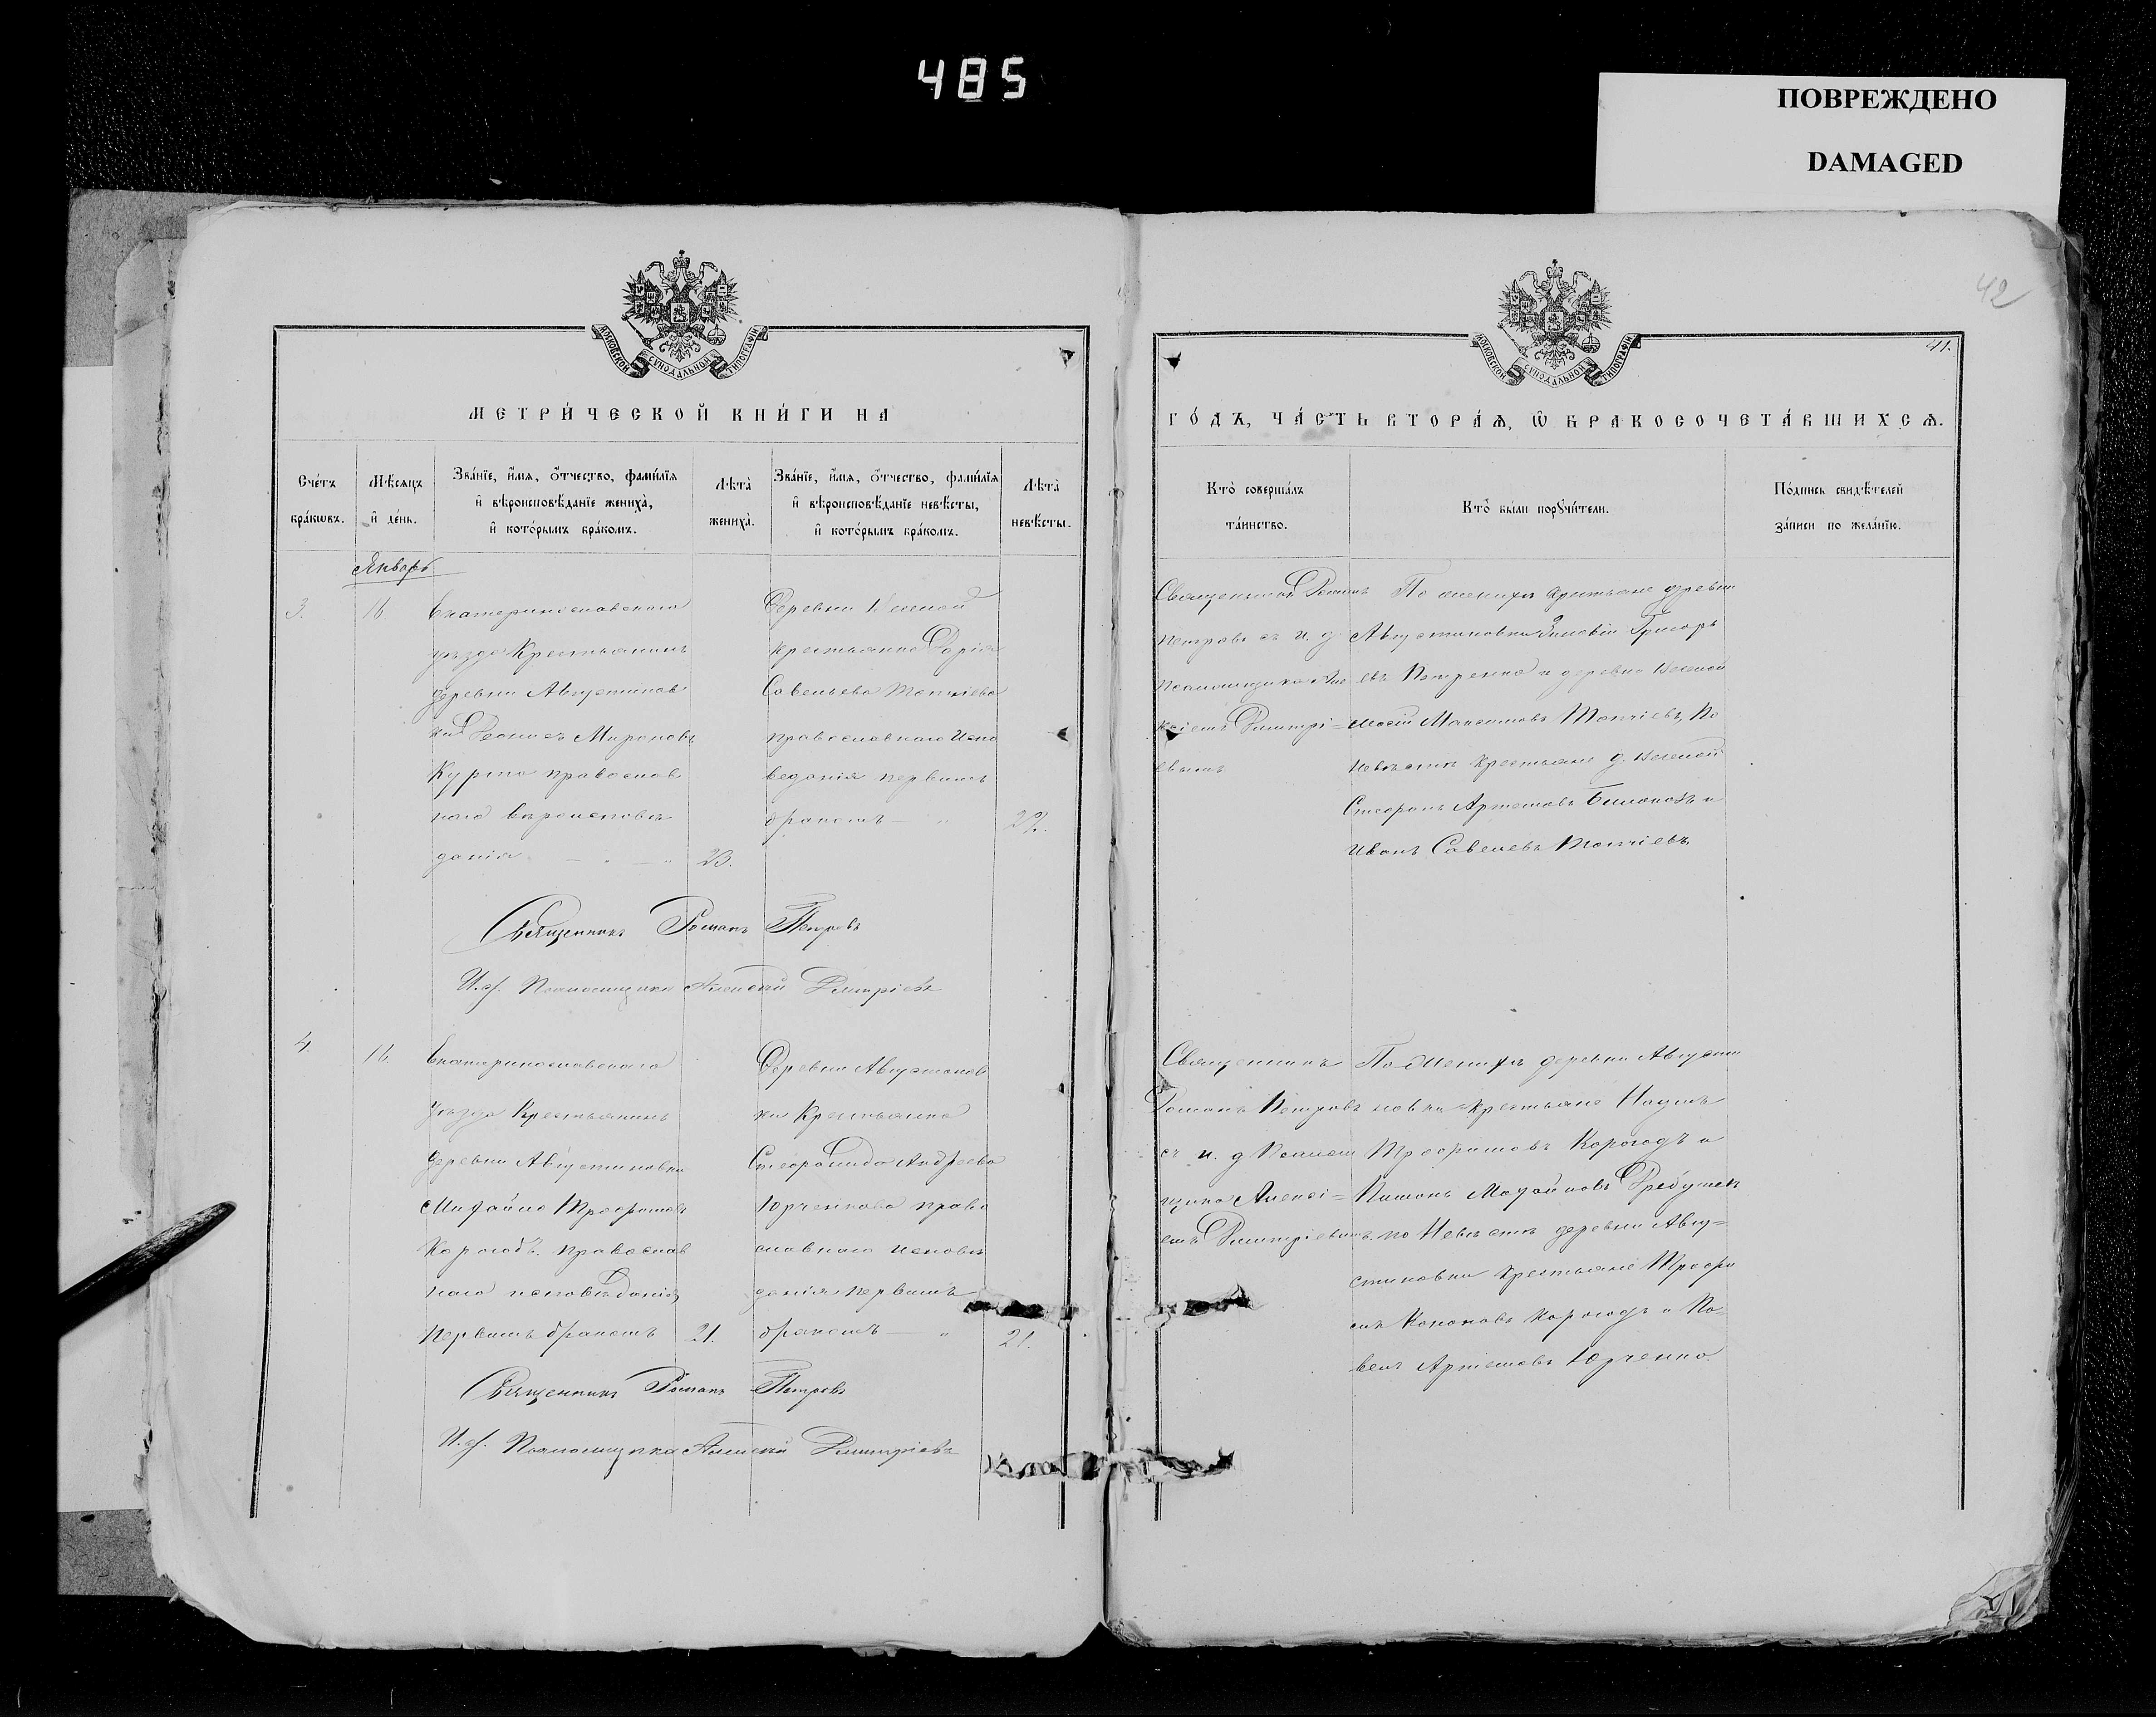 485
ПОВРЕЖДЕНО
DAMAGED
42
41.
МОСКОВСКОЙ СѴНОДАЛЬНОЙ ТИПОГРАФІИ
МОСКОВСКОЙ СѴНОДАЛЬНОЙ ТИПОГРАФІИ
МЕТРИ́ЧЕСКОЙ КНИ́ГИ НА
ГО́ДЪ, ЧА́СТЬ ВТОРА́Ѧ, Ѡ҆ БРАКОСОЧЕТА́ВШИХСѦ.
Сче́тъ
бра́кѡвъ.
Мѣ́сяцъ
и҆ де́нь.
Зва́нїе, и҆́мя, ѻ҆́тчество, фами́лїя
и҆ вѣроисповѣ́данїе жениха̀,
и҆ кото́рымъ бра́комъ.
Лѣта̀
жениха̀.
Зва́нїе, и҆́мя, ѻ҆́тчество, фами́лїя
и҆ вѣроисповѣ́данїе невѣ́сты,
и҆ кото́рымъ бра́комъ.
Лѣта̀
невѣ́сты.
Кто̀ соверша́лъ
та́инство.
Кто̀ бы́ли порꙋчи́тели.
По́дпись свидѣ́телей
за́писи по жела́нїю.
Январь
3.
16.
Екатеринославскаго
уѣзда Крестьянинъ
деревни Августинов
ки Мироновъ
Курта православ
наго вѣроисповѣ
данія
23.
Деревни
крестьянка Дарія
Савельева Топчіева
православнаго Испо
веданія первымъ
бракомъ
22.
Священникъ Романъ
Петровъ съ и. д.
Псаломщика Але
ксіемъ Дмитрі=
евымъ
По женихѣ крестьяне деревни
Августиновки Зиновій Григорь
евъ Петренко и деревни
Максимовъ Топчіевъ, По
Невѣстѣ крестьяне д.
Стефанъ Артемовъ и
Иванъ Савелевъ Топчіевъ
Священникъ Романъ Петровъ
И. д. Псаломщика Алексій Дмитріевъ
4.
16.
Екатеринославскаго
Уѣзда Крестьянинъ
деревни Августиновки
Михайло Трофимовъ
Корогодъ. православ
наго исповѣданія
Первымъ бракомъ
21.
Деревни Августинов
ки Крестьянка
Стефанида Андреева
Юрченкова право
славнаго исповѣ
данія первымъ
бракомъ
21.
Священникъ
Романъ Петровъ
съ и. д Псалом
щика Алексі=
емъ Дмитріевымъ
По Женихѣ деревни Августи
новки крестьяне Наумъ
Трофимовъ Корогодъ и
Михайловъ
по Невѣстѣ деревни Авгу=
стиновки крестьяне Трофи
мъ Кононовъ Корогодъ и Па
велъ Артемовъ Юрченко.
Священникъ Романъ Петровъ
И. д. Псаломщика Алексій Дмитріевъ